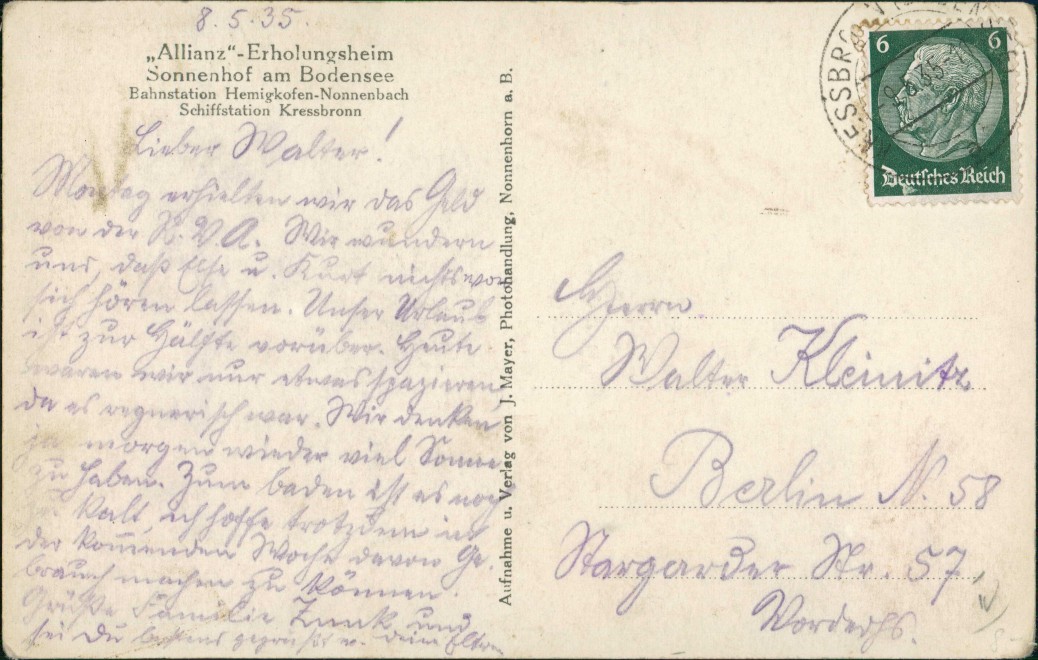 8.5.35.
„Allianz“-Erholungsheim
Sonnenhof am Bodensee
Bahnstation Hemigkofen-Nonnenbach
Schiffstation Kressbronn
Lieber Walter!
Montag erhielten wir das Geld
von der R.V.A. Wir wundern
uns, daß Else u. Kurt nichts von
sich hören lassen. Unser Urlaub
ist zur Hälfte vorüber. Heute
waren wir nur etwas spazieren,
da es regnerisch war. Wir denken
ja morgen wieder viel Sonne
zu haben. Zum baden ist es noch
zu kalt, ich hoffe trotzdem in
der kommenden Woche davon Ge-
brauch machen zu können.
Grüße Familie und
sei Du bestens gegrüßt v. Dein Eltern
Aufnahme u. Verlag von J. Mayer, Photohandlung, Nonnenhorn a. B.
KRESSBRO
8.5.35
6 6
Deutsches Reich
Herrn
Walter Kleinitz
Berlin N. 58
Stargarder Str. 57,
Vorderhs.